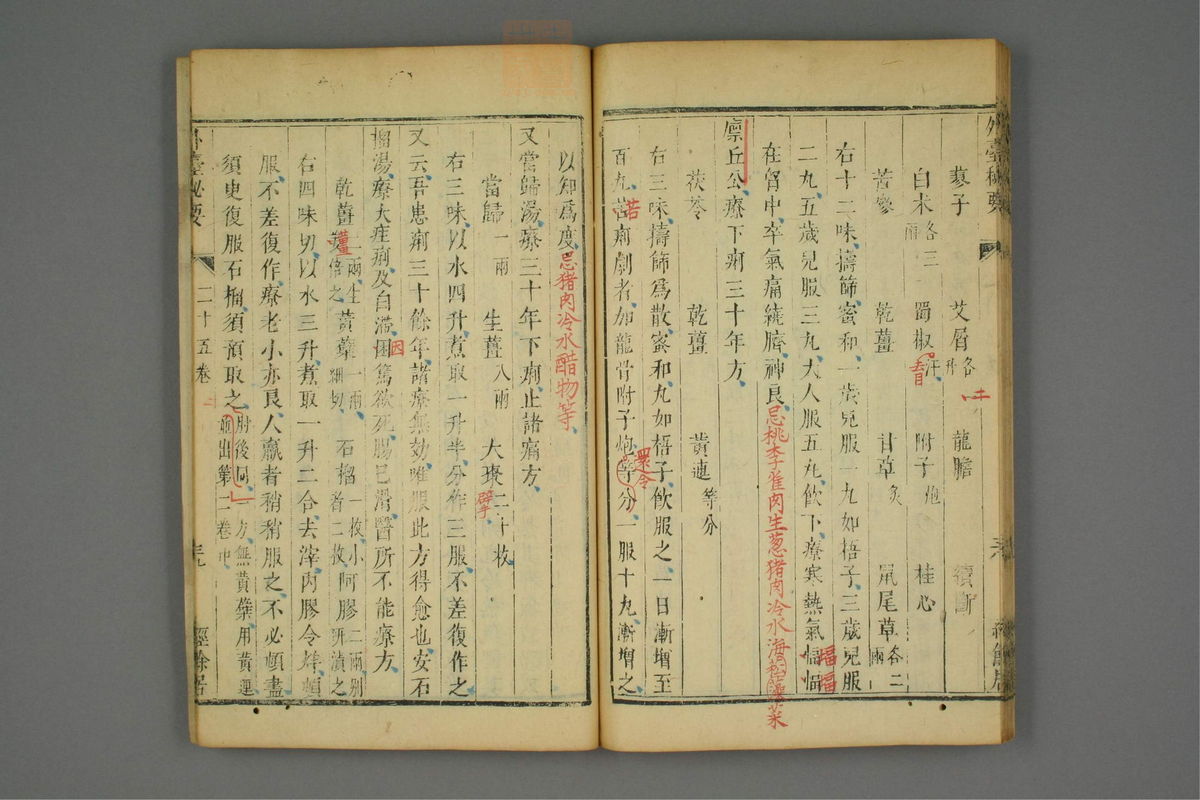 外臺秘要
葶子 艾屑各 龍膽 續斷
白朮各三兩 蜀椒汗 附子炮 桂心
苦參 乾薑 甘草炙 鼠尾草各二兩
右十二味擣篩蜜和一歲兒服一九如梧子三歲兒服
二九五歲兒服三九大人服五九飲下療寒熱氣愊愊
在胷中卒氣痛繞臍神良忌桃李雀肉生葱猪肉冷水海松菘菜
廪丘公療下痢三十年方
茯苓 乾薑 黃連等分
右三味擣篩爲散蜜和丸如梧子飲服之一日漸增至
百丸若痢劇者加龍骨附子炮等分一服十九漸增之
以知爲度忌猪肉冷水醋物等
又當歸湯療三十年下痢止諸痛方
當歸二兩 生薑八兩 大棗二十枚
右三味以水四升煮取一升半分作三服不差復作之
又云吾患痢三十餘年諸療無効唯服此方得愈也安石
榴湯療大疰痢及白滯困篤欲死腸已滑醫所不能療方
乾薑二兩生薑倍之 黃蘗一兩細切 石榴一枚小者二枚 阿膠二兩別研漬之
右四味切以水三升煮取一升二合去滓內膠令烊頓
服不差復作療老小亦良人羸者稍稍服之不必頓盡
須臾復服石榴須預取之肘後同一方無黃蘗用黃連並出第二卷中
外臺秘要 二十五卷 經餘居